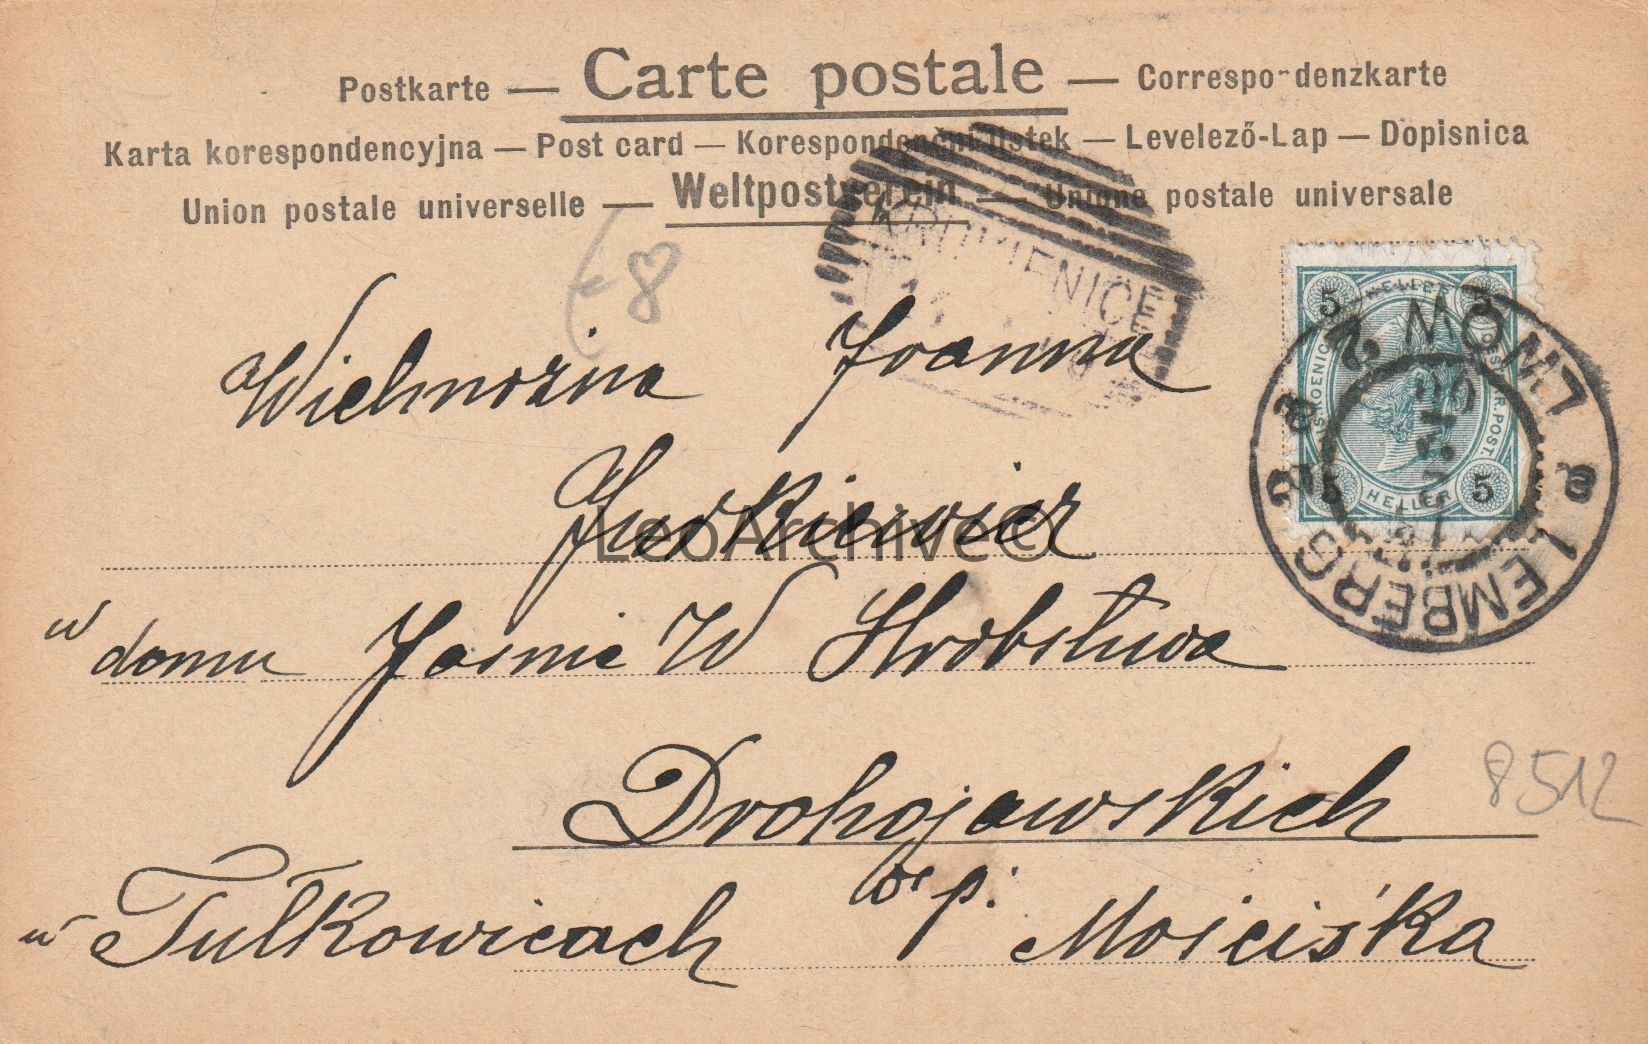 Postkarte — Carte postale — Correspondenzkarte
Karta korespondencyjna — Post card — Korespondenční lístek — Levelező-Lap — Dopisnica
Union postale universelle — Weltpostverein — Unione postale universale
8
KRUKIENICE
HELLER
5 5
5 5
HELLER
LWÓW 2
LEMBERG 2
Wielmożna Joanna
Jurkiewicz
LeoArchive©
w domu Jasnie W Hrobstwa
Drohojawskich
8512
w Tułkowicach op: Mościska